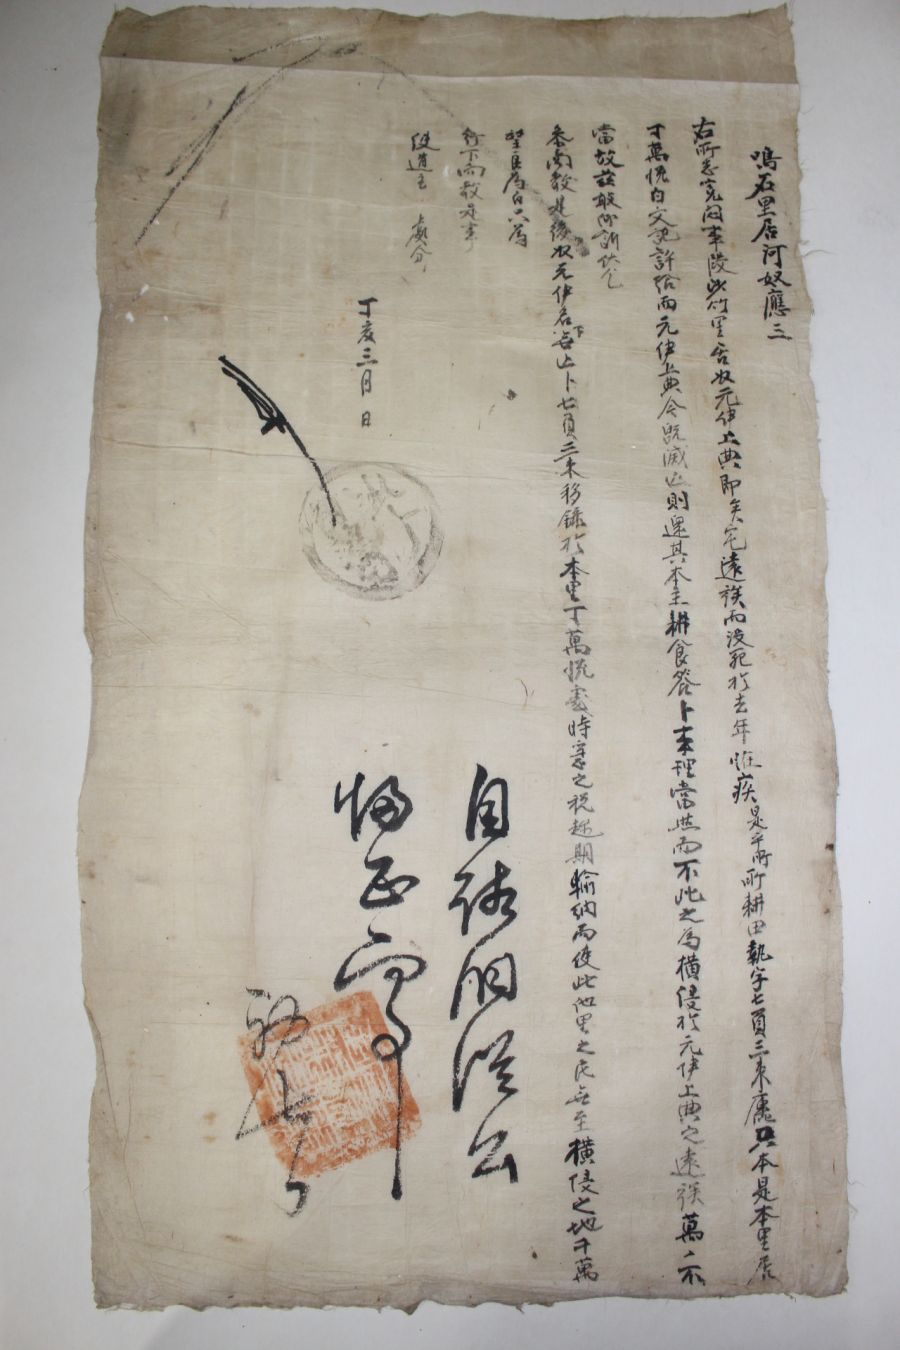 鳴石里居河奴應三
右所志寃悶事段此竹里居奴元伊上典即矣宅遠族而沒死於去年怪疾是乎所所耕田執字七負三束庫只本是本里居
丁萬悅自文記許給而元伊上典今旣滅亡則還其本主耕食答卜束理當然而不此之爲橫侵於元伊上典之遠族萬萬不
當故茲敢仰訴伏乞
參商敎是後奴元伊名下亡卜七負三束移錄於本里丁萬悅處時之稅趂期輸納而使此他里之民無至橫侵之地千萬
望良爲白只爲
行下向敎是事
使道主 處分
丁亥三月 日
自 洞從公
歸正 事